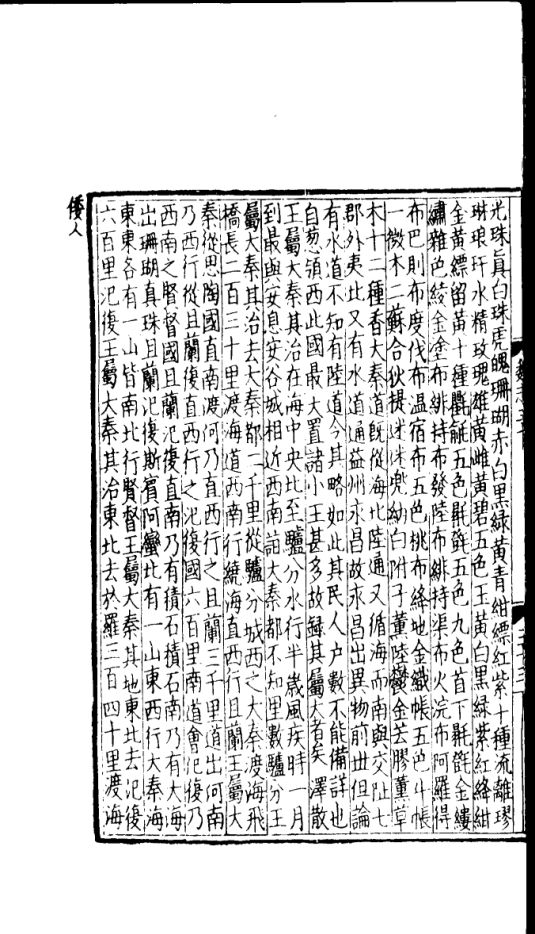 光珠眞白珠虎魄珊瑚赤白黑綠黃青紺縹紅紫十種流離璆
琳琅玕水精玫瑰雄黃雌黃碧五色玉黃白黑綠紫紅絳紺
金黃縹留黃十種氍毹五色毾㲪五色九色首下毾㲪金縷
繡雜色綾金塗布緋持布發陸布緋持渠布火浣布阿羅得
布巴則布度伐布溫宿布五色桃布絳地金織帳五色斗帳
一微木二蘇合狄提迷迷兜納白附子薰陸鬱金芸膠薰草
木十二種香大秦道旣從海北陸通又循海而南與交阯七
郡外夷比又有水道通益州永昌故永昌出異物前世但論
有水道不知有陸道今其略如此其民人戶數不能備詳也
自葱領西此國最大置諸小王甚多故錄其屬大者矣澤散
王屬大秦其治在海中央北至驢分水行半歲風疾時一月
到最與安息安谷城相近西南詣大秦都不知里數驢分王
屬大秦其治去大秦都二千里從驢分城西之大秦渡海飛
橋長二百三十里渡海道西南行繞海直西行且蘭王屬大
秦從思陶國直南渡河乃直西行之且蘭三千里道出河南
乃西行從且蘭復直西行之汜復國六百里南道會汜復乃
西南之賢督國且蘭汜復直南乃有積石積石南乃有大海
出珊瑚真珠且蘭汜復斯賓阿蠻北有一山東西行大秦海
東東各有一山皆南北行賢督王屬大秦其地東北去汜復
六百里汜復王屬大秦其治東北去於羅三百四十里渡海
倭人